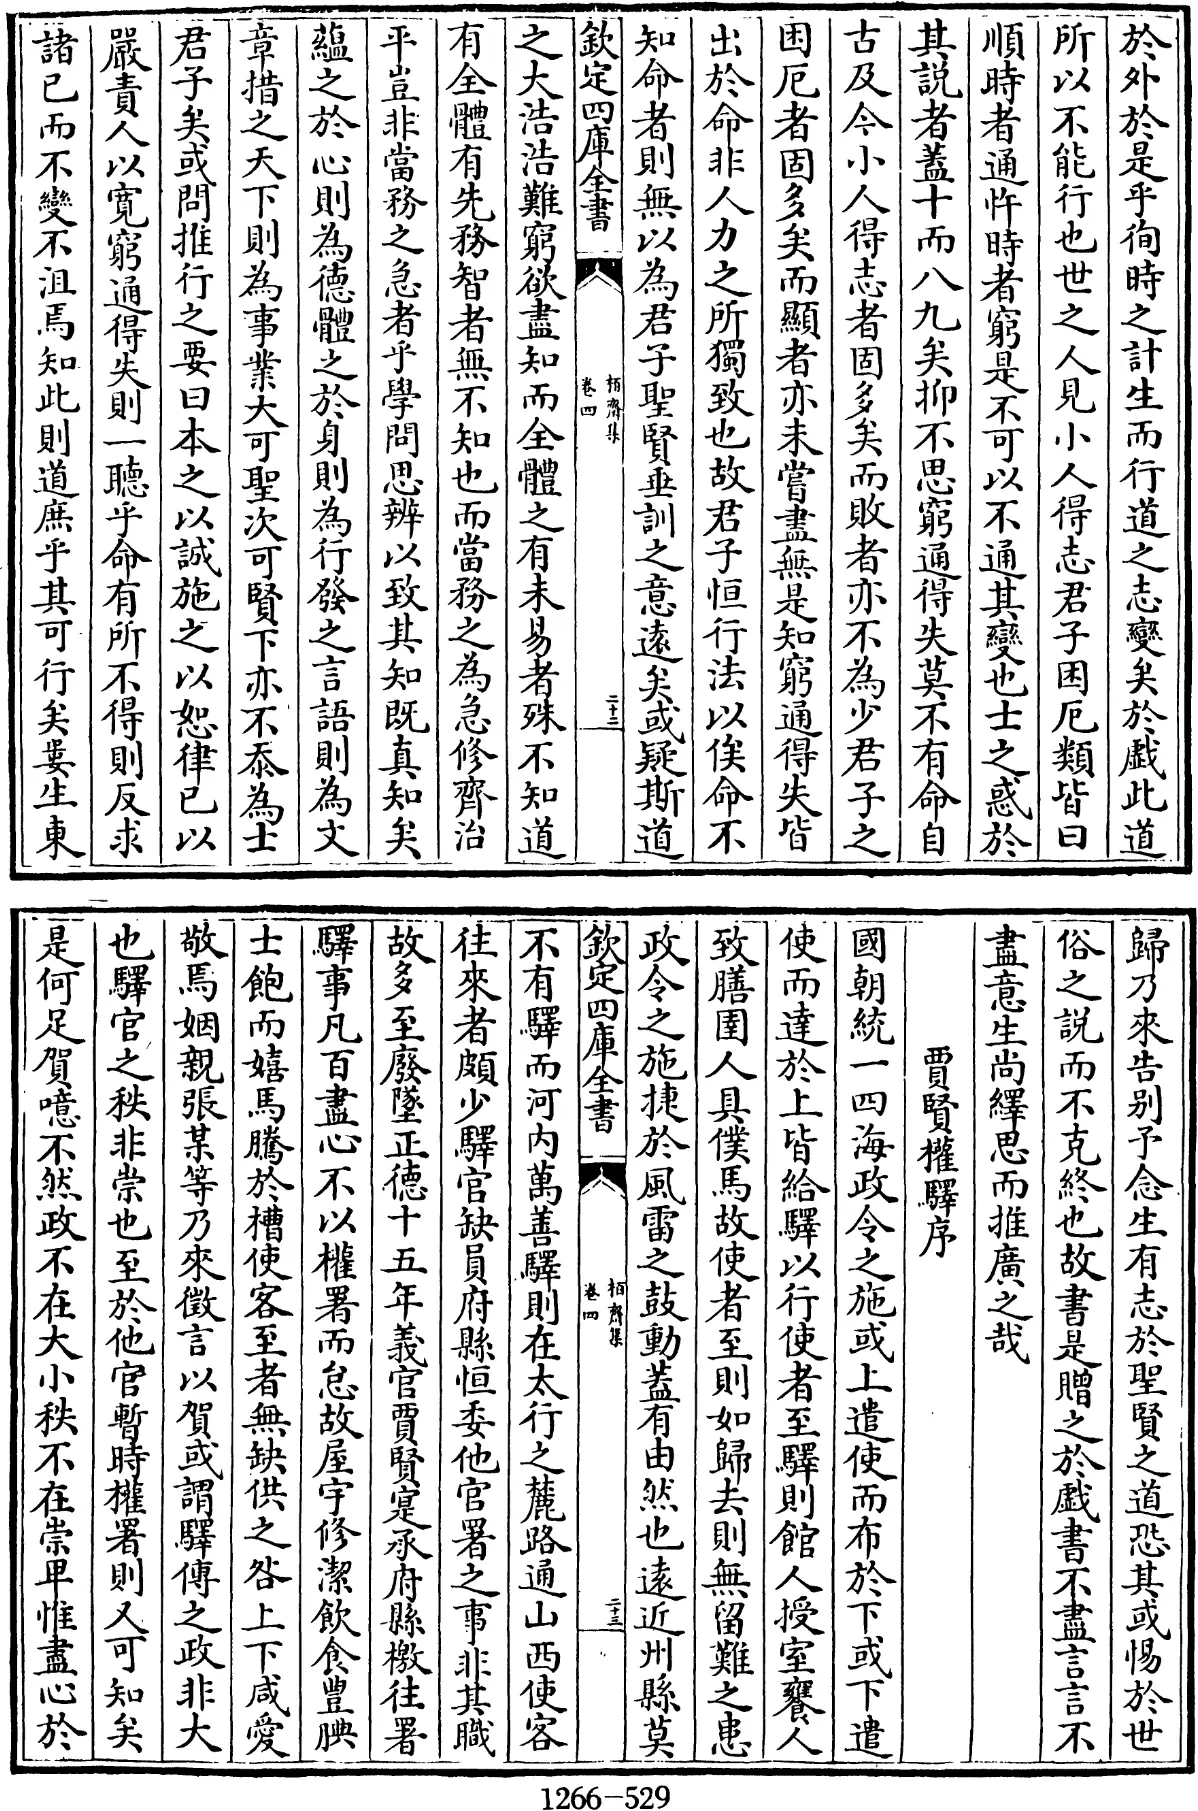 於外於是乎徇時之計生而行道之志變矣於戲此道
所以不能行也世之人見小人得志君子困厄類皆曰
順時者通忤時者窮是不可以不通其變也士之惑於
其説者蓋十而八九矣抑不思窮通得失莫不有命自
古及今小人得志者固多矣而敗者亦不為少君子之
困厄者固多矣而顯者亦未嘗盡無是知窮通得失皆
出於命非人力之所獨致也故君子恒行法以俟命不
知命者則無以為君子聖賢垂訓之意遠矣或疑斯道
欽定四庫全書
栢齋集
卷四
二十二
之大浩浩難窮欲盡知而全體之有未易者殊不知道
有全體有先務智者無不知也而當務之為急修齊治
平豈非當務之急者乎學問思辨以致其知既真知矣
蘊之於心則為德體之於身則為行發之言語則為文
章措之天下則為事業大可聖次可賢下亦不忝為士
君子矣或問推行之要曰本之以誠施之以恕律已以
嚴責人以寛窮通得失則一聽乎命有所不得則反求
諸已而不變不沮焉知此則道庶乎其可行矣婁生東
歸乃來告别予念生有志於聖賢之道恐其或惕於世
俗之説而不克終也故書是贈之於戲書不盡言言不
盡意生尚繹思而推廣之哉
賈賢權驛序
國朝統一四海政令之施或上遣使而布於下或下遣
使而達於上皆給驛以行使者至驛則館人授室饔人
致膳圉人具僕馬故使者至則如歸去則無留難之患
政令之施捷於風雷之鼓動蓋有由然也遠近州縣莫
欽定四庫全書
栢齋集
卷四
二十三
不有驛而河内萬善驛則在太行之麓路通山西使客
往來者頗少驛官缺員府縣恒委他官署之事非其職
故多至廢墜正德十五年義官賈賢寔承府縣檄往署
驛事凡百盡心不以權署而怠故屋宇修潔飲食豐腆
士飽而嬉馬騰於槽使客至者無缺供之咎上下咸愛
敬焉姻親張某等乃來徵言以賀或謂驛傳之政非大
也驛官之秩非崇也至於他官暫時權署則又可知矣
是何足賀噫不然政不在大小秩不在崇卑惟盡心於
1266-529